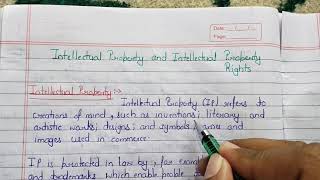 Date
Page
Intellectual Property and Intellectual Property
Rights
Intellectual Property :-
Intellectual Property (IP) refers to
creations of mind, such as inventions; literary and
artistic works; designs; and symbols, and
images used in commerce.
IP is protected in law by, for exam
and trademarks which enable people